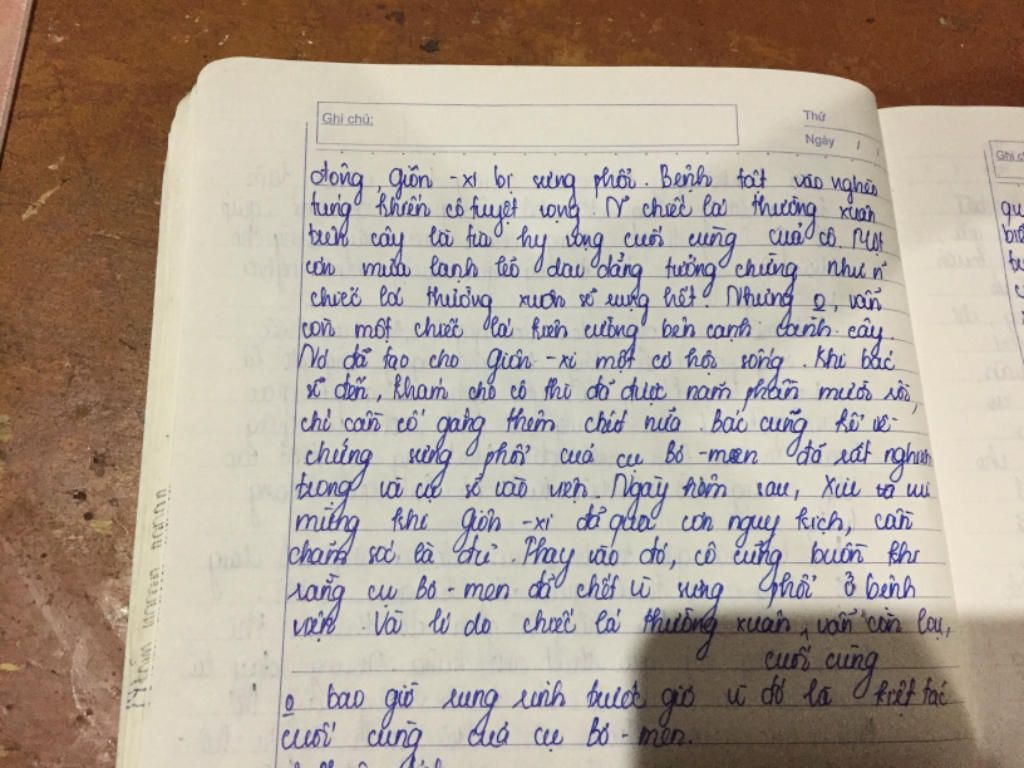 Ghi chú:
Thứ
Ngày / /
đông, Giôn-xi bị sưng phổi. Bệnh tật vào nghèo
túng khiến cô tuyệt vọng. N chiếc lá thường xuân
trên cây là tia hy vọng cuối cùng của cô. Một
cơn mưa lạnh lẽo dai dẳng tưởng chừng như n
chiếc lá thường xuân sẽ rụng hết. Nhưng o, vẫn
còn một chiếc lá kiên cường bên cạnh cành cây.
Nó đã tạo cho Giôn-xi một cơ hội sống. Khi bác
sĩ đến, khám cho cô thì đã được năm phần mười rồi,
chỉ cần cố gắng thêm chút nữa. Bác cũng kể về
chứng sưng phổi của cụ Bơ-men đã rất nghiêm
trọng và cụ sẽ vào viện. Ngày hôm sau, Xiu vui
mừng khi Giôn-xi đã qua cơn nguy kịch, cần
chăm sóc là đủ. Thay vào đó, cô cũng buồn khi
rằng cụ Bơ-men đã chết vì sưng phổi ở bệnh
viện. Và lí do chiếc lá thường xuân vẫn còn lại,
cuối cùng
o bao giờ rung rinh trước gió vì đó là kiệt tác
cuối cùng của cụ Bơ-men.